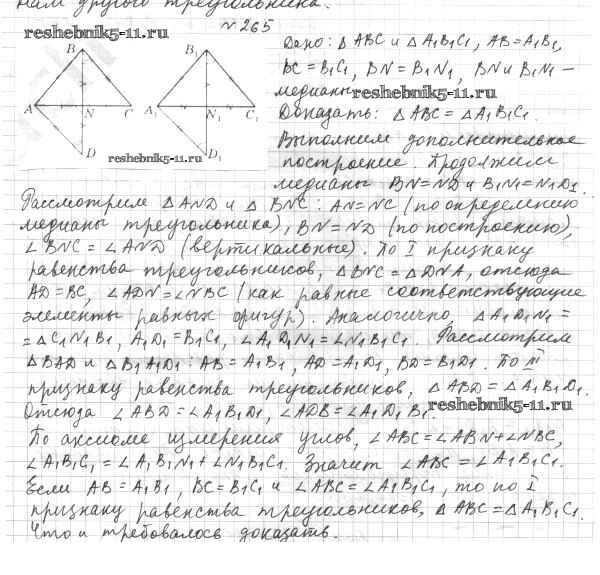 нам другого треугольника.
№265
reshebnik5-11.ru
Дано: △ ABC и △ A₁B₁C₁, AB = A₁B₁,
BC = B₁C₁, BN = B₁N₁, BN и B₁N₁ –
медианы
reshebnik5-11.ru
Доказать: △ ABC = △ A₁B₁C₁.
Выполним дополнительное
построение. Продолжим
медианы BN = ND и B₁N₁ = N₁D₁.
B
B₁
A
N
C
A₁
N₁
C₁
D
D₁
reshebnik5-11.ru
Рассмотрим △ AND и △ BNC: AN = NC (по определению
медианы треугольника), BN = ND (по построению),
∠ BNC = ∠ AND (вертикальные). По I признаку
равенства треугольников, △ BNC = △ DNA, отсюда
AD = BC, ∠ ADN = ∠ NBC (как равные соответствующие
элементы равных фигур). Аналогично, △ A₁D₁N₁ =
= △ C₁N₁B₁, A₁D₁ = B₁C₁, ∠ A₁D₁N₁ = ∠ N₁B₁C₁. Рассмотрим
△ BAD и △ B₁A₁D₁: AB = A₁B₁, AD = A₁D₁, BD = B₁D₁. По III
признаку равенства треугольников, △ ABD = △ A₁B₁D₁.
Отсюда ∠ ABD = ∠ A₁B₁D₁, ∠ ADB = ∠ A₁D₁B₁.
reshebnik5-11.ru
По аксиоме измерения углов, ∠ ABC = ∠ ABN + ∠ NBC,
∠ A₁B₁C₁ = ∠ A₁B₁N₁ + ∠ N₁B₁C₁. Значит ∠ ABC = ∠ A₁B₁C₁.
Если AB = A₁B₁, BC = B₁C₁ и ∠ ABC = ∠ A₁B₁C₁, то по I
признаку равенства треугольников, △ ABC = △ A₁B₁C₁.
Что и требовалось доказать.